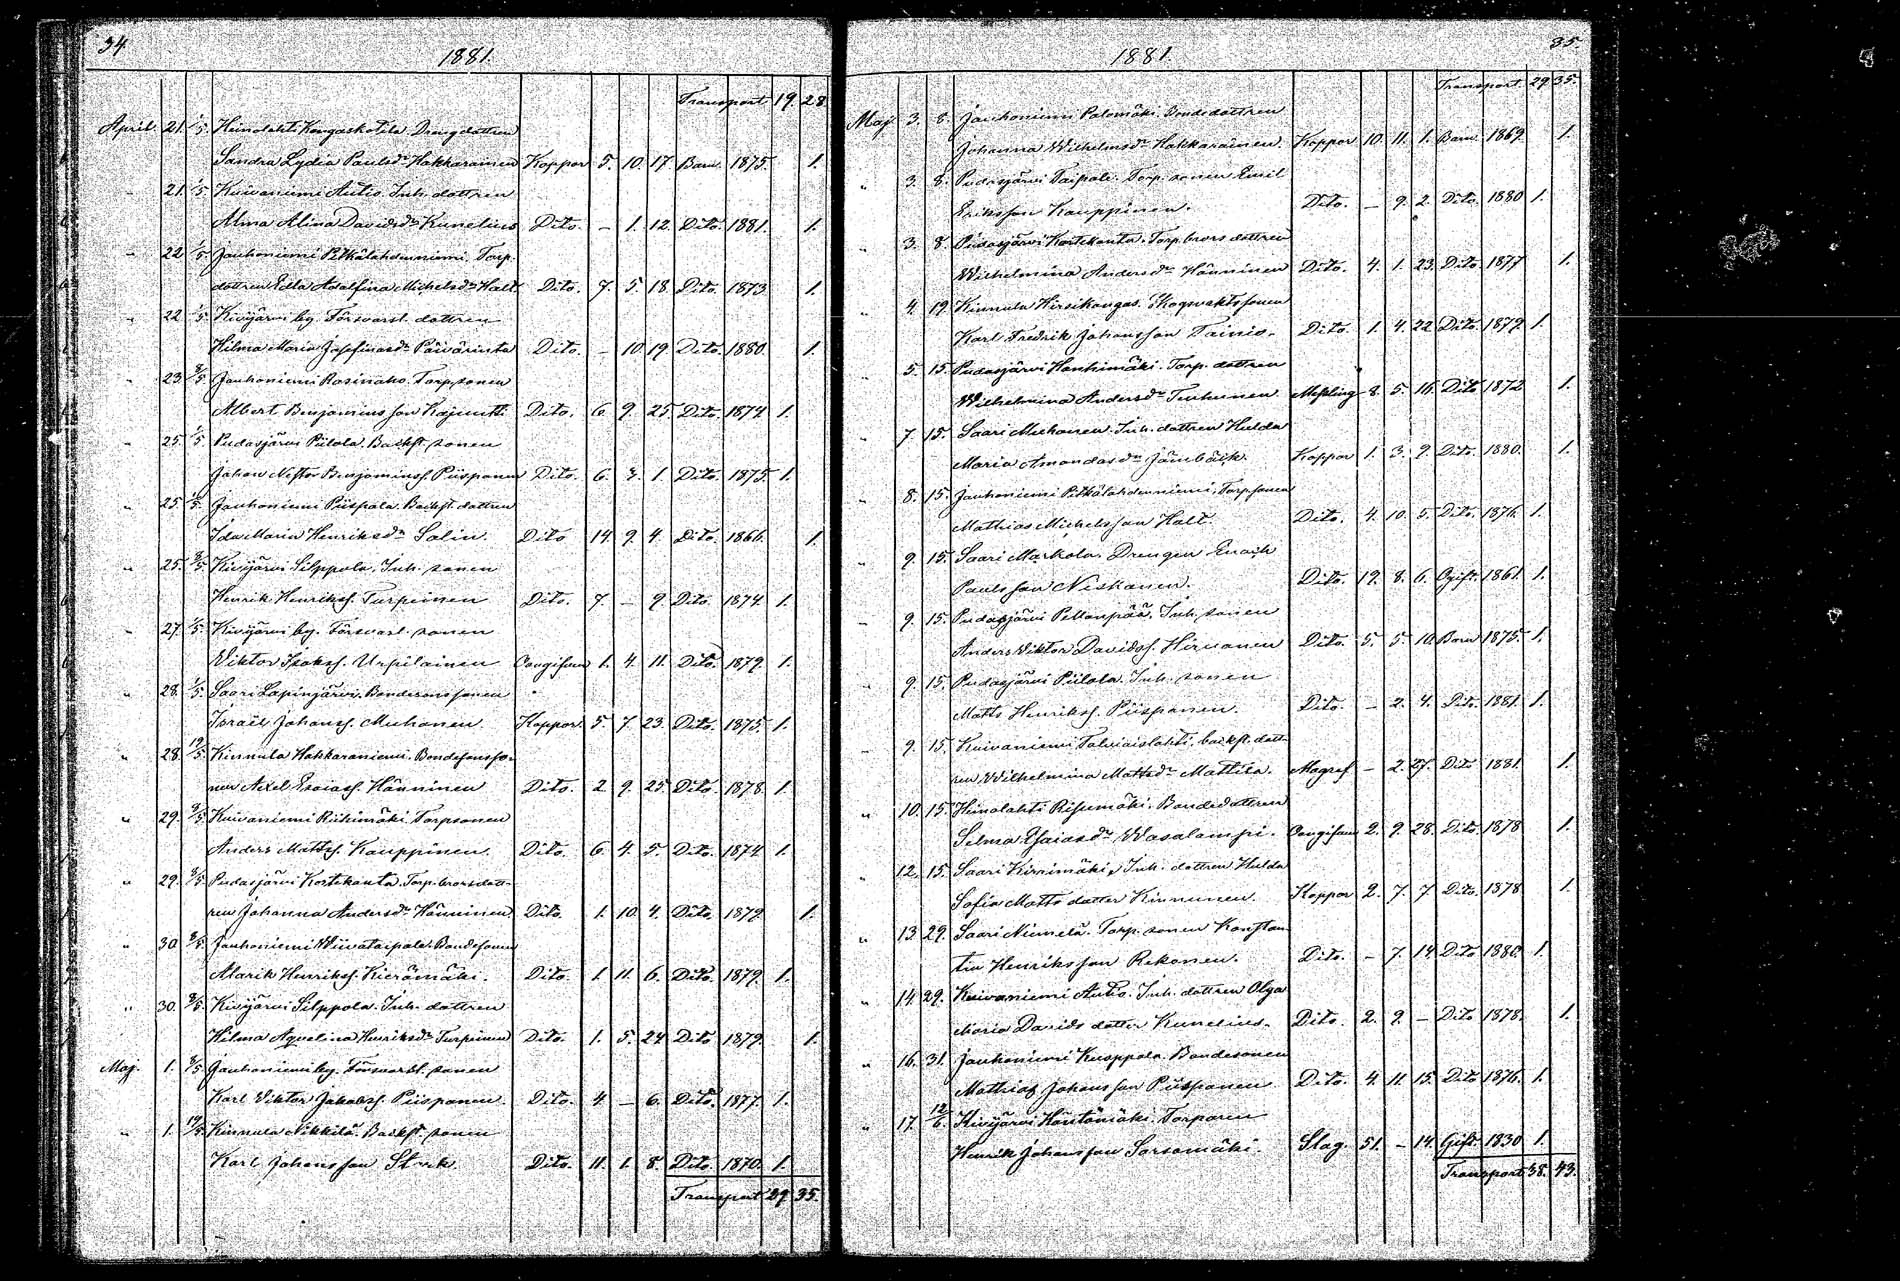 34
1881.
Transport 19. 28
April. 21. 1/5. Heinolahti Kangaskotila. Drengdottren
Sandra Lydia Paulsdr Hakkarainen Koppor 5. 10. 17 Barn. 1875. 1.
" 21. 1/5. Kuivaniemi Autio. Inh. dottren
Alma Alina Davidsdr Kunelius Dito. – 1. 12. Dito. 1881. 1.
" 22 1/5. Jauhoniemi Pitkälahdenniemi. Torp.
dottren Edla Adolfina Michelsdr Halt Dito. 7. 5. 18. Dito. 1873 1.
" 22 1/5. Kivijärvi by. Försvarsl. dottren
Hilma Maria Josefinasdr Päivärinta Dito. – 10. 19 Dito. 1880. 1.
" 23. 8/5. Jauhoniemi Rasinaho. Torp. sonen
Albert Benjamins son Kajuutti Dito. 6. 9. 25. Dito. 1874. 1.
" 25. 1/5. Pudasjärvi Piilola. Backst. sonen
Johan Nestor Benjaminss. Piispanen Dito. 6. 3. 1. Dito. 1875. 1.
" 25. 1/5. Jauhoniemi Piispala. Backst. dottren
Ida Maria Henriksdr Salin. Dito 14. 9. 4. Dito. 1866. 1.
" 25. 8/5. Kivijärvi Silppola. Inh. sonen
Henrik Henrikss. Turpeinen Dito. 7. – 9 Dito. 1874. 1.
" 27. 1/5. Kivijärvi by. Försvarsl. sonen
Viktor Isakss. Urpilainen Oangifven 1. 4. 11. Dito. 1879. 1.
" 28. 1/5. Saari Lapinjärvi. Bondesons sonen
Israël Johanss. Muhonen Koppor. 5. 7. 23. Dito. 1875. 1.
" 28. 19/5. Kinnula Hakkaraniemi. Bondesonsso-
nen Axel Esaiass. Hänninen Dito. 2 9. 25. Dito. 1878. 1.
" 29. 8/5. Kuivaniemi Riihimäki. Torpsonen
Anders Mattss. Kauppinen. Dito. 6. 4. 5. Dito. 1874 1.
" 29. 8/5. Pudasjärvi Kortekanta. Torp. brorsdott-
ren Johanna Andersdr Hänninen Dito. 1. 10. 4. Dito. 1879. 1.
" 30. 8/5. Jauhoniemi Wiivataipale. Bondesonen
Alarik Henrikss. Kierämäki. Dito. 1. 11. 6. Dito. 1879. 1.
" 30. 8/5. Kivijärvi Silppola. Inh. dottren
Hilma Aqvelina Henriksdr Turpeinen Dito. 1. 5. 24 Dito. 1879. 1.
Maj. 1. 8/5. Jauhoniemi by. Försvarsl. sonen
Karl Viktor Jakobss. Piispanen. Dito. 4. – 6. Dito. 1877. 1.
" 1. 19/5. Kinnula Nikkilä. Backst. sonen
Karl Johansson Stark Dito. 11. 1. 8. Dito. 1870. 1.
Transport 29. 35.
35.
1881.
Transport. 29. 35.
Maj. 3. 8. Jauhoniemi Palomäki. Bondedottren
Johanna Wilhelmsdr Hakkarainen. Koppor 10. 11. 1. Barn. 1869. 1.
" 3. 8. Pudasjärvi Taipale. Torp. sonen Emil
Eriksson Kauppinen. Dito. – 9. 2. Dito. 1880 1.
" 3. 8. Pudasjärvi Kortekanta. Torp. brors dottren
Wilhelmina Andersdr Hänninen Dito. 4. 1. 23. Dito. 1877 1.
" 4. 19. Kinnula Hirsikangas. Skogsvaktssonen
Karl Fredrik Johansson Tainio. Dito. 1. 4. 22. Dito. 1879. 1.
" 5. 15. Pudasjärvi Hanhimäki. Torp. dottren
Wilhelmina Andersdr Turhunen Messling 8. 5. 16. Dito 1872 1.
" 7 15. Saari Muhonen. Inh. dottren Hulda
Maria Amandasdr Jämbäck. Koppor 1. 3. 9. Dito. 1880. 1.
" 8. 15. Jauhoniemi Pitkälahdenniemi. Torpsonen
Mathias Michelsson Halt. Dito. 4. 10. 5. Dito. 1876. 1.
" 9. 15. Saari Markola. Drengen Enoch
Paulsson Niskanen. Dito. 19. 8. 6. Ogift. 1861. 1.
9. 15. Pudasjärvi Pellonpää. Inh. sonen
Anders Viktor Davidss. Hirvonen Dito. 5. 5 10. Barn 1875. 1.
" 9. 15. Pudasjärvi Piilola. Inh. sonen
Matts Henrikss. Piispanen. Dito. – 2. 4. Dito. 1881. 1.
9. 15. Kuivaniemi Talviaislahti. backst. dott-
ren Wilhelmina Mattsdr Mattila. Magref – 2. 27. Dito 1881. 1.
" 10. 15. Heinolahti Risumäki. Bondedottren
Selma Esaiasdr Wasalampi. Oangifven 2. 9. 28. Dito. 1878 1.
" 12. 15. Saari Kirrimäki. Inh. dottren Hulda
Sofia Matts dotter Kinnunen. Koppor 2. 7. 7 Dito. 1878 1.
" 13. 29. Saari Niemelä. Torp. sonen Konstan-
tin Henriksson Rekonen. Dito. – 7. 14 Dito 1880. 1.
" 14 29. Kuivaniemi Autio. Inh. dottren Olga
Maria Davids dotter Kunelius. Dito. 2. 9. – Dito 1878. 1.
" 16. 31. Jauhoniemi Kuoppala. Bondesonen
Mathias Johansson Piispanen. Dito. 4. 11. 15. Dito 1876. 1.
" 17. 12/6. Kivijärvi Häntämäki. Torparen
Henrik Johansson Sorsamäki. Slag. 51. – 14. Gift. 1830 1.
Transport 38. 43.